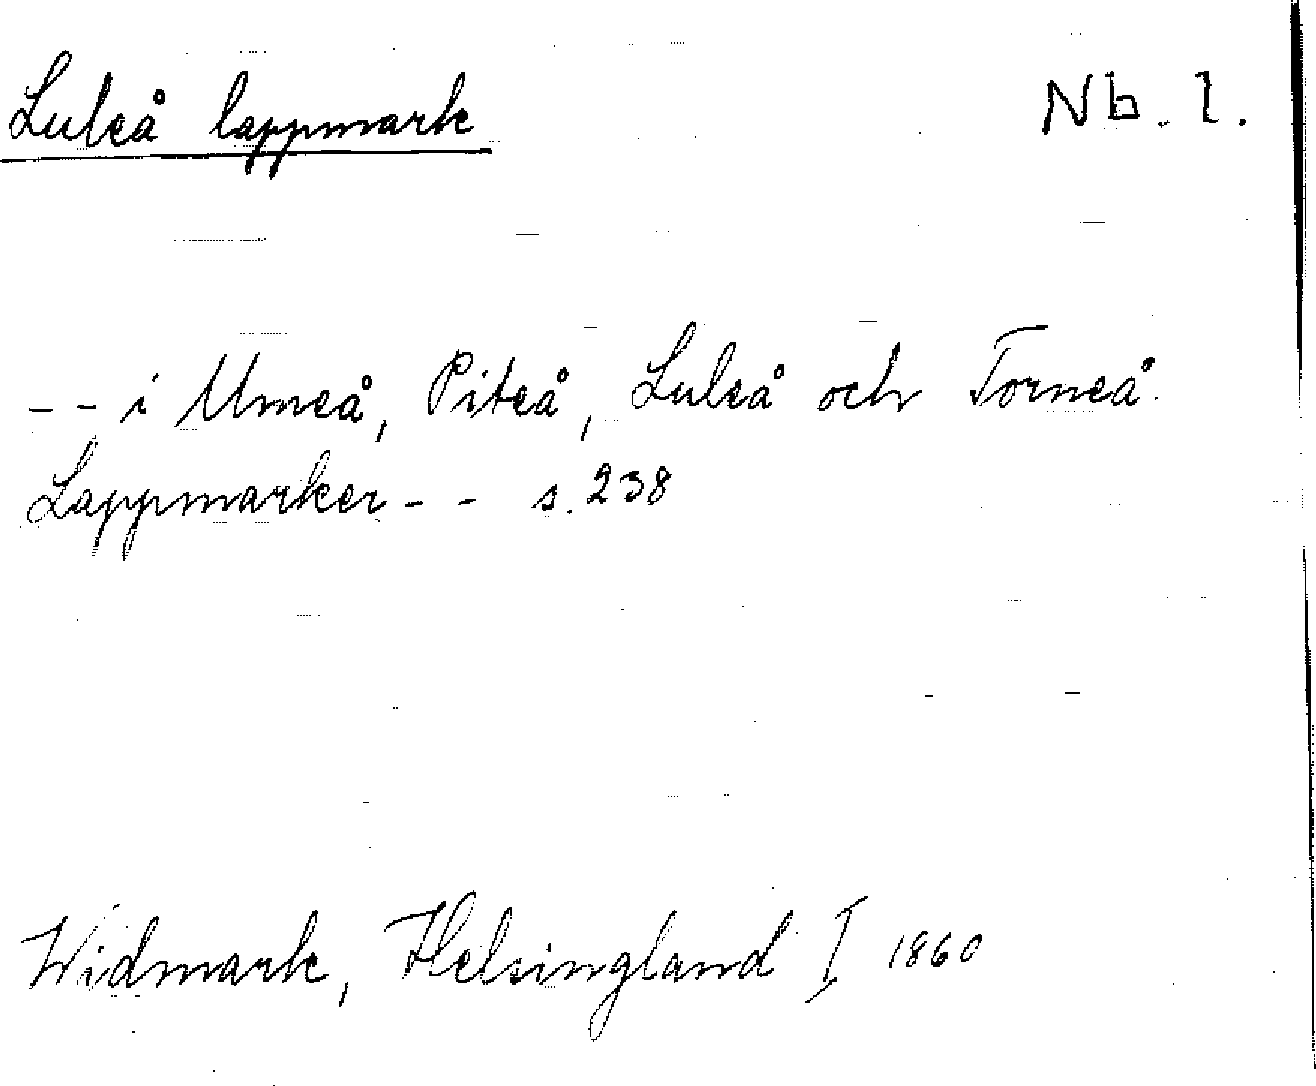 Luleå lappmark
Nb. l.
-- i Umeå, Piteå, Luleå och Torneå
Lappmarker -- s. 238
Widmark, Helsingland I 1860